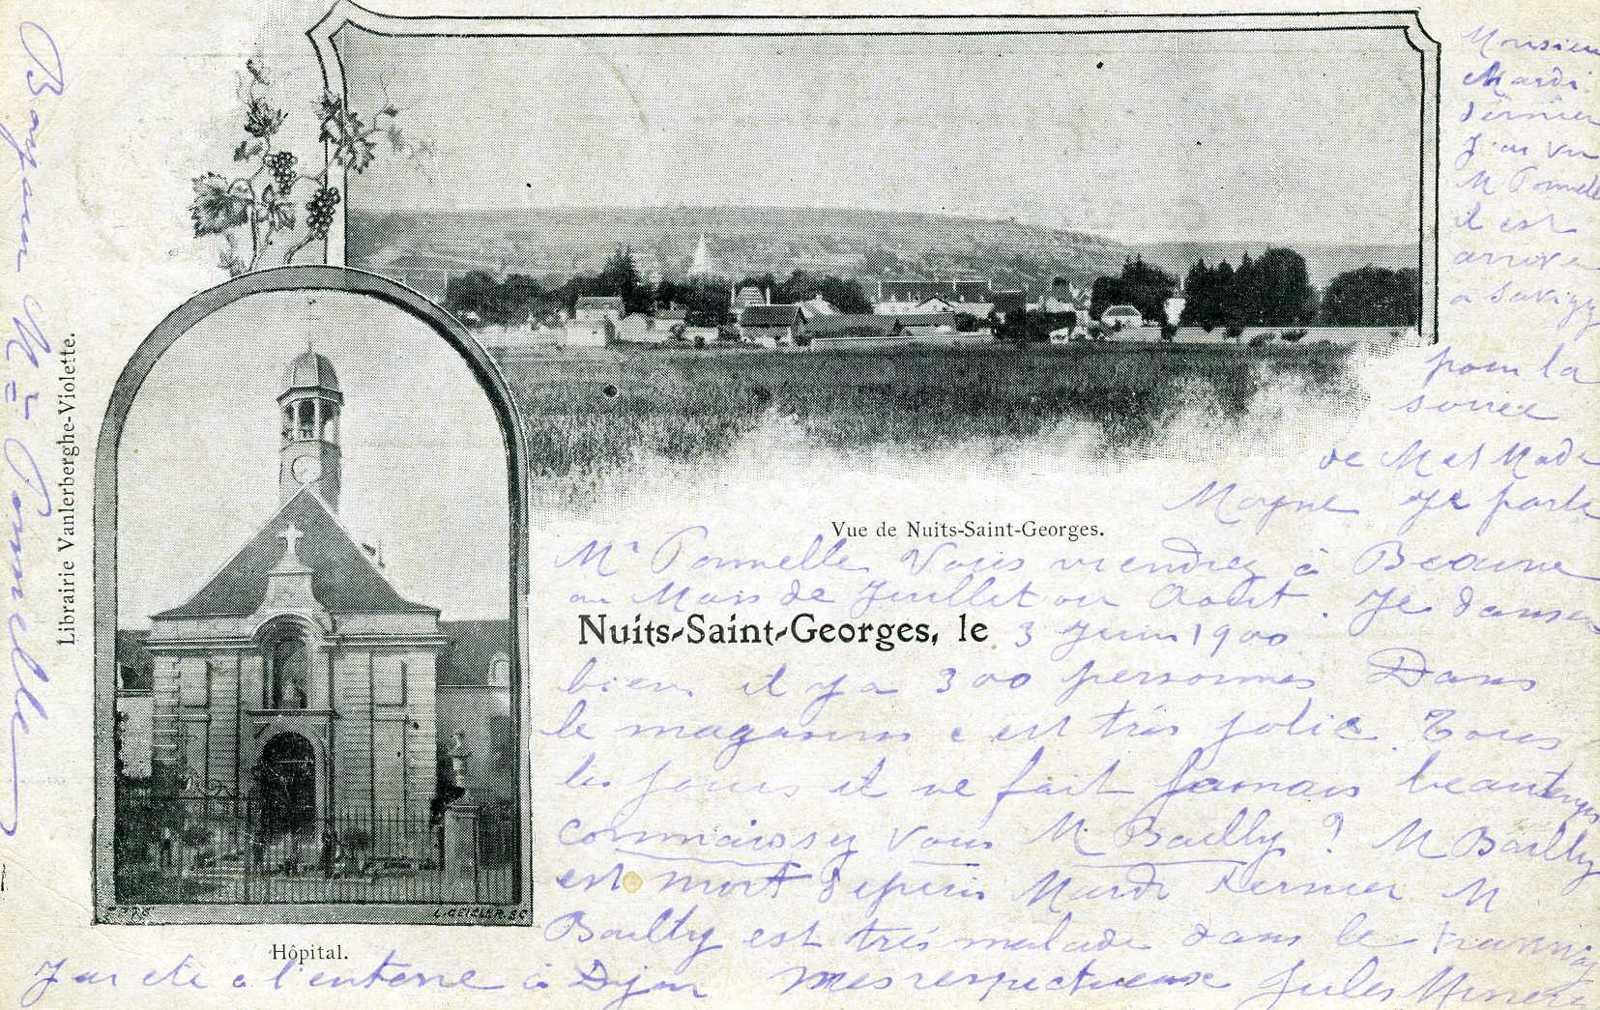 Monsieur
Mardi
dernier
J'ai vu
M Pomelle
il est
arrivé
a Savigy
pour la
soiree
de M et Mada
Moyne Je parle
Mr Pomelle Vous viendrez à Beaune
au Mois de Juillet ou Aout. Je danse
Vue de Nuits-Saint-Georges.
Nuits-Saint-Georges, le 3 Juin 1900
bien il y a 300 personnes Dans
le magasins c est très jolie. Tous
les jours il ne fait jamais beau temps
connaissez vous M. Bailly ? M Bailly
est mort depuis Mardi dernier M
Bailly est très malade dans le
J'ai été a l'enterre à Dijon mes respectueuse Jules
Hôpital.
Librairie Vanlerberghe-Violette.
Mr Pomelle
L. GEISLER SC